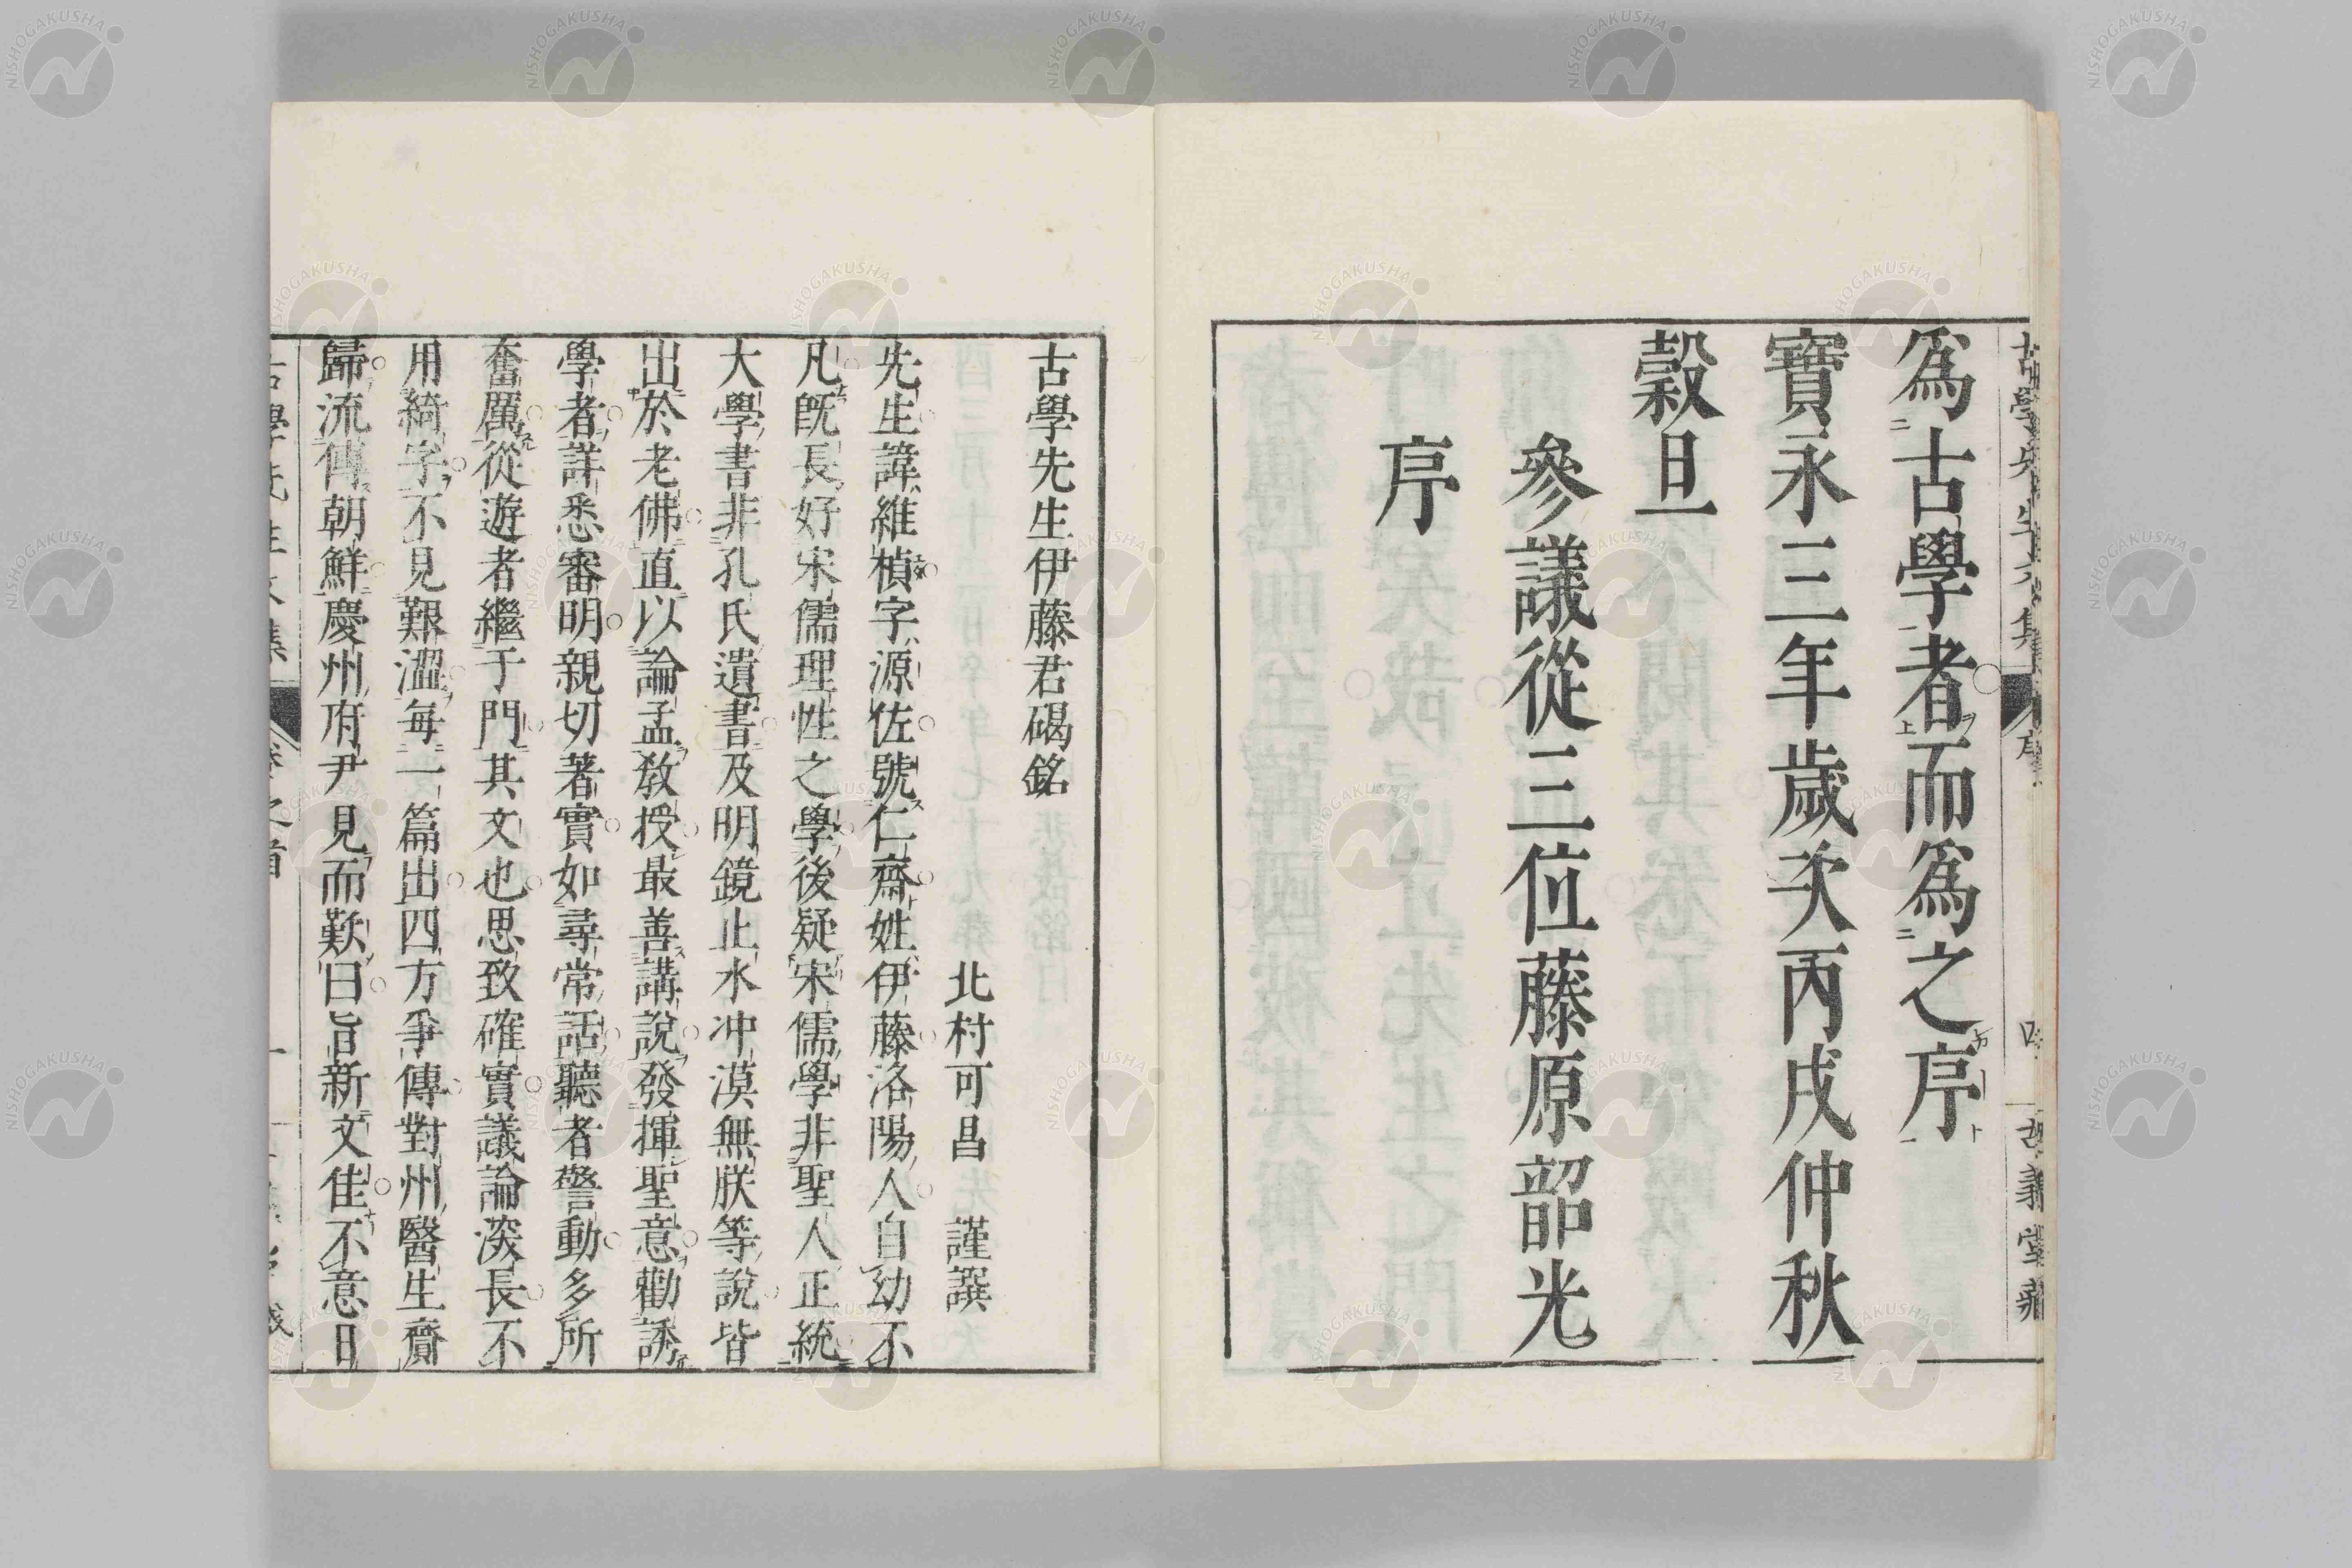 爲古學者而爲之序
寶永三年歲次丙戌仲秋
穀旦
參議從三位藤原韶光
序
古學先生伊藤君碣銘
北村可昌 謹譔
先生諱維楨字源佐號仁齋姓伊藤洛陽人自幼不
凡既長好宋儒理性之學後疑宋儒學非聖人正統
大學書非孔氏遺書及明鏡止水冲漠無朕等說皆
出於老佛直以論孟教授最善講說發揮聖意勸誘
學者詳悉審明親切著實如尋常話聽者警動多所
奮厲從遊者繼于門其文也思致確實議論深長不
用綺字不見艱澀每一篇出四方爭傳對州醫生齎
歸流傳朝鮮慶州府尹見而歎曰旨新文佳不意日